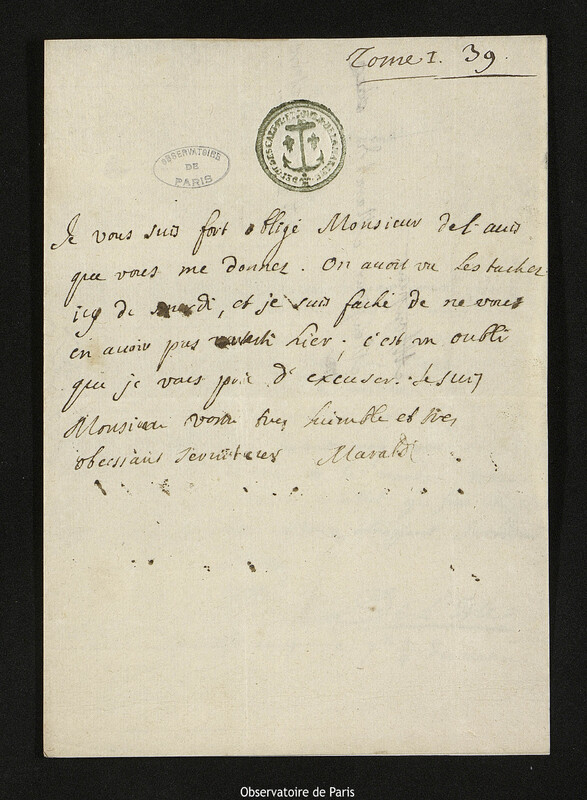 Tome I. 39.
OBSERVATOIRE
DE
PARIS
Je vous suis fort obligé Monsieur de l'auis
que vous me donnez. On auoit vu les taches
icy de mardi, et je suis faché de ne vous
en auoir pas auerti hier, c'est un oubli
que je vous prie d'excuser. Je suis
Monsieur votre tres humble et tres
obeissant seruiteur Maraldi
Observatoire de Paris